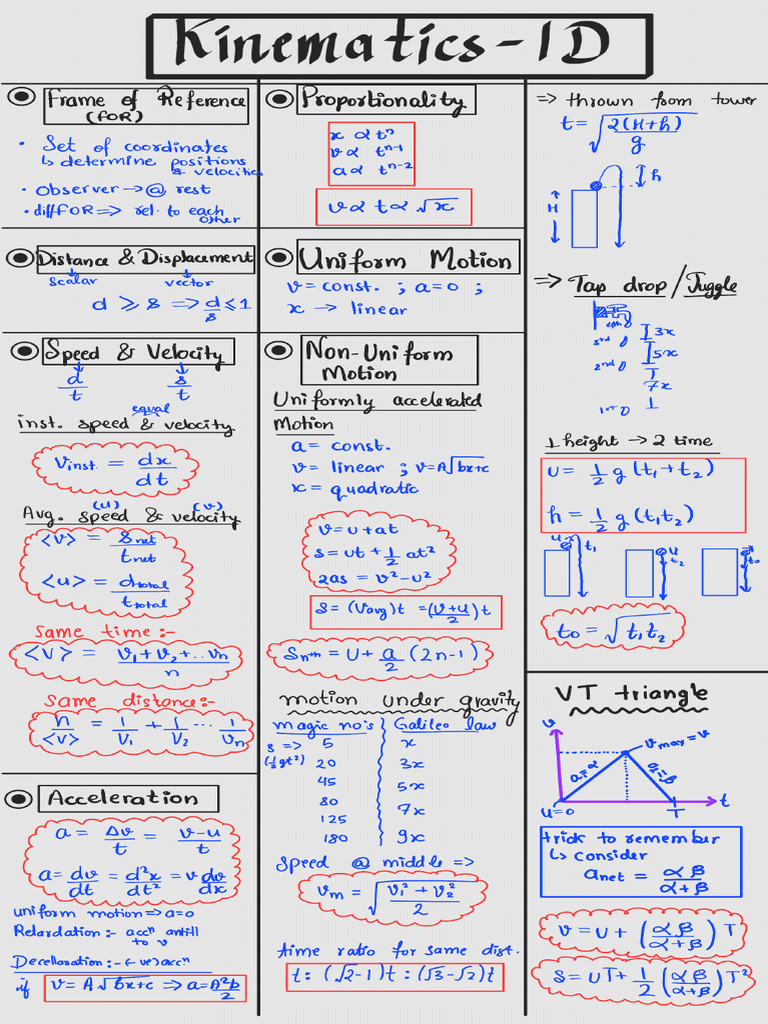 Kinematics - 1D
Frame of Reference
(FOR)
• Set of coordinates
↳ determine positions
& velocities
• observer → @ rest
• diff FOR ⇒ rel. to each
other
Distance & Displacement
scalar vector
d ≥ s ⇒ d/s ≤ 1
Speed & Velocity
d/t s/t
equal
inst. speed & velocity
Vinst = dx/dt
(u) (v)
Avg. speed & velocity
<v> = snet/tnet
<u> = dtotal/ttotal
same time:-
<v> = v1+v2+...vn/n
same distance:-
n/<v> = 1/V1 + 1/V2 ... 1/vn
Acceleration
a = Δv/t = v-u/t
a = dv/dt = d²x/dt² = v dv/dx
uniform motion ⇒ a=0
Retardation:- accⁿ antill
to v
Decellaration:- (-ve) accⁿ
if v = A√bx+c ⇒ a = A²b/2
Proportionality
x ∝ tⁿ
v ∝ tⁿ⁻¹
a ∝ tⁿ⁻²
v ∝ t ∝ √x
Uniform Motion
v = const. ; a=0 ;
x → linear
Non-Uniform
Motion
Uniformly accelerated
Motion
a = const.
v = linear ; v=A√bx+c
x = quadratic
v = u + at
s = ut + 1/2 at²
2as = v² - u²
s = (Vavg)t = (v+u/2)t
Snth = U + a/2 (2n-1)
motion under gravity
magic no's Galileo law
s ⇒ 5 x
(½gt²) 20 3x
45 5x
80 7x
125
180 9x
Speed @ middle ⇒
Vm = √V1² + V2²/2
time ratio for same dist.
t : (√2-1)t : (√3-√2)t
⇒ thrown from tower
t = √2(H+h)/g
h
H
⇒ Tap drop / Juggle
4th
3rd 3x
5x
2nd
7x
1st
1 height → 2 time
u = 1/2 g (t1+t2)
h = 1/2 g (t1t2)
u t1 u t2 to
to = √t1t2
VT triangle
v
Vmax = v
a1=α a2=β
u=0 T t
trick to remember
↳ consider
anet = αβ/α+β
v = u + (αβ/α+β) T
s = uT + 1/2 (αβ/α+β) T²